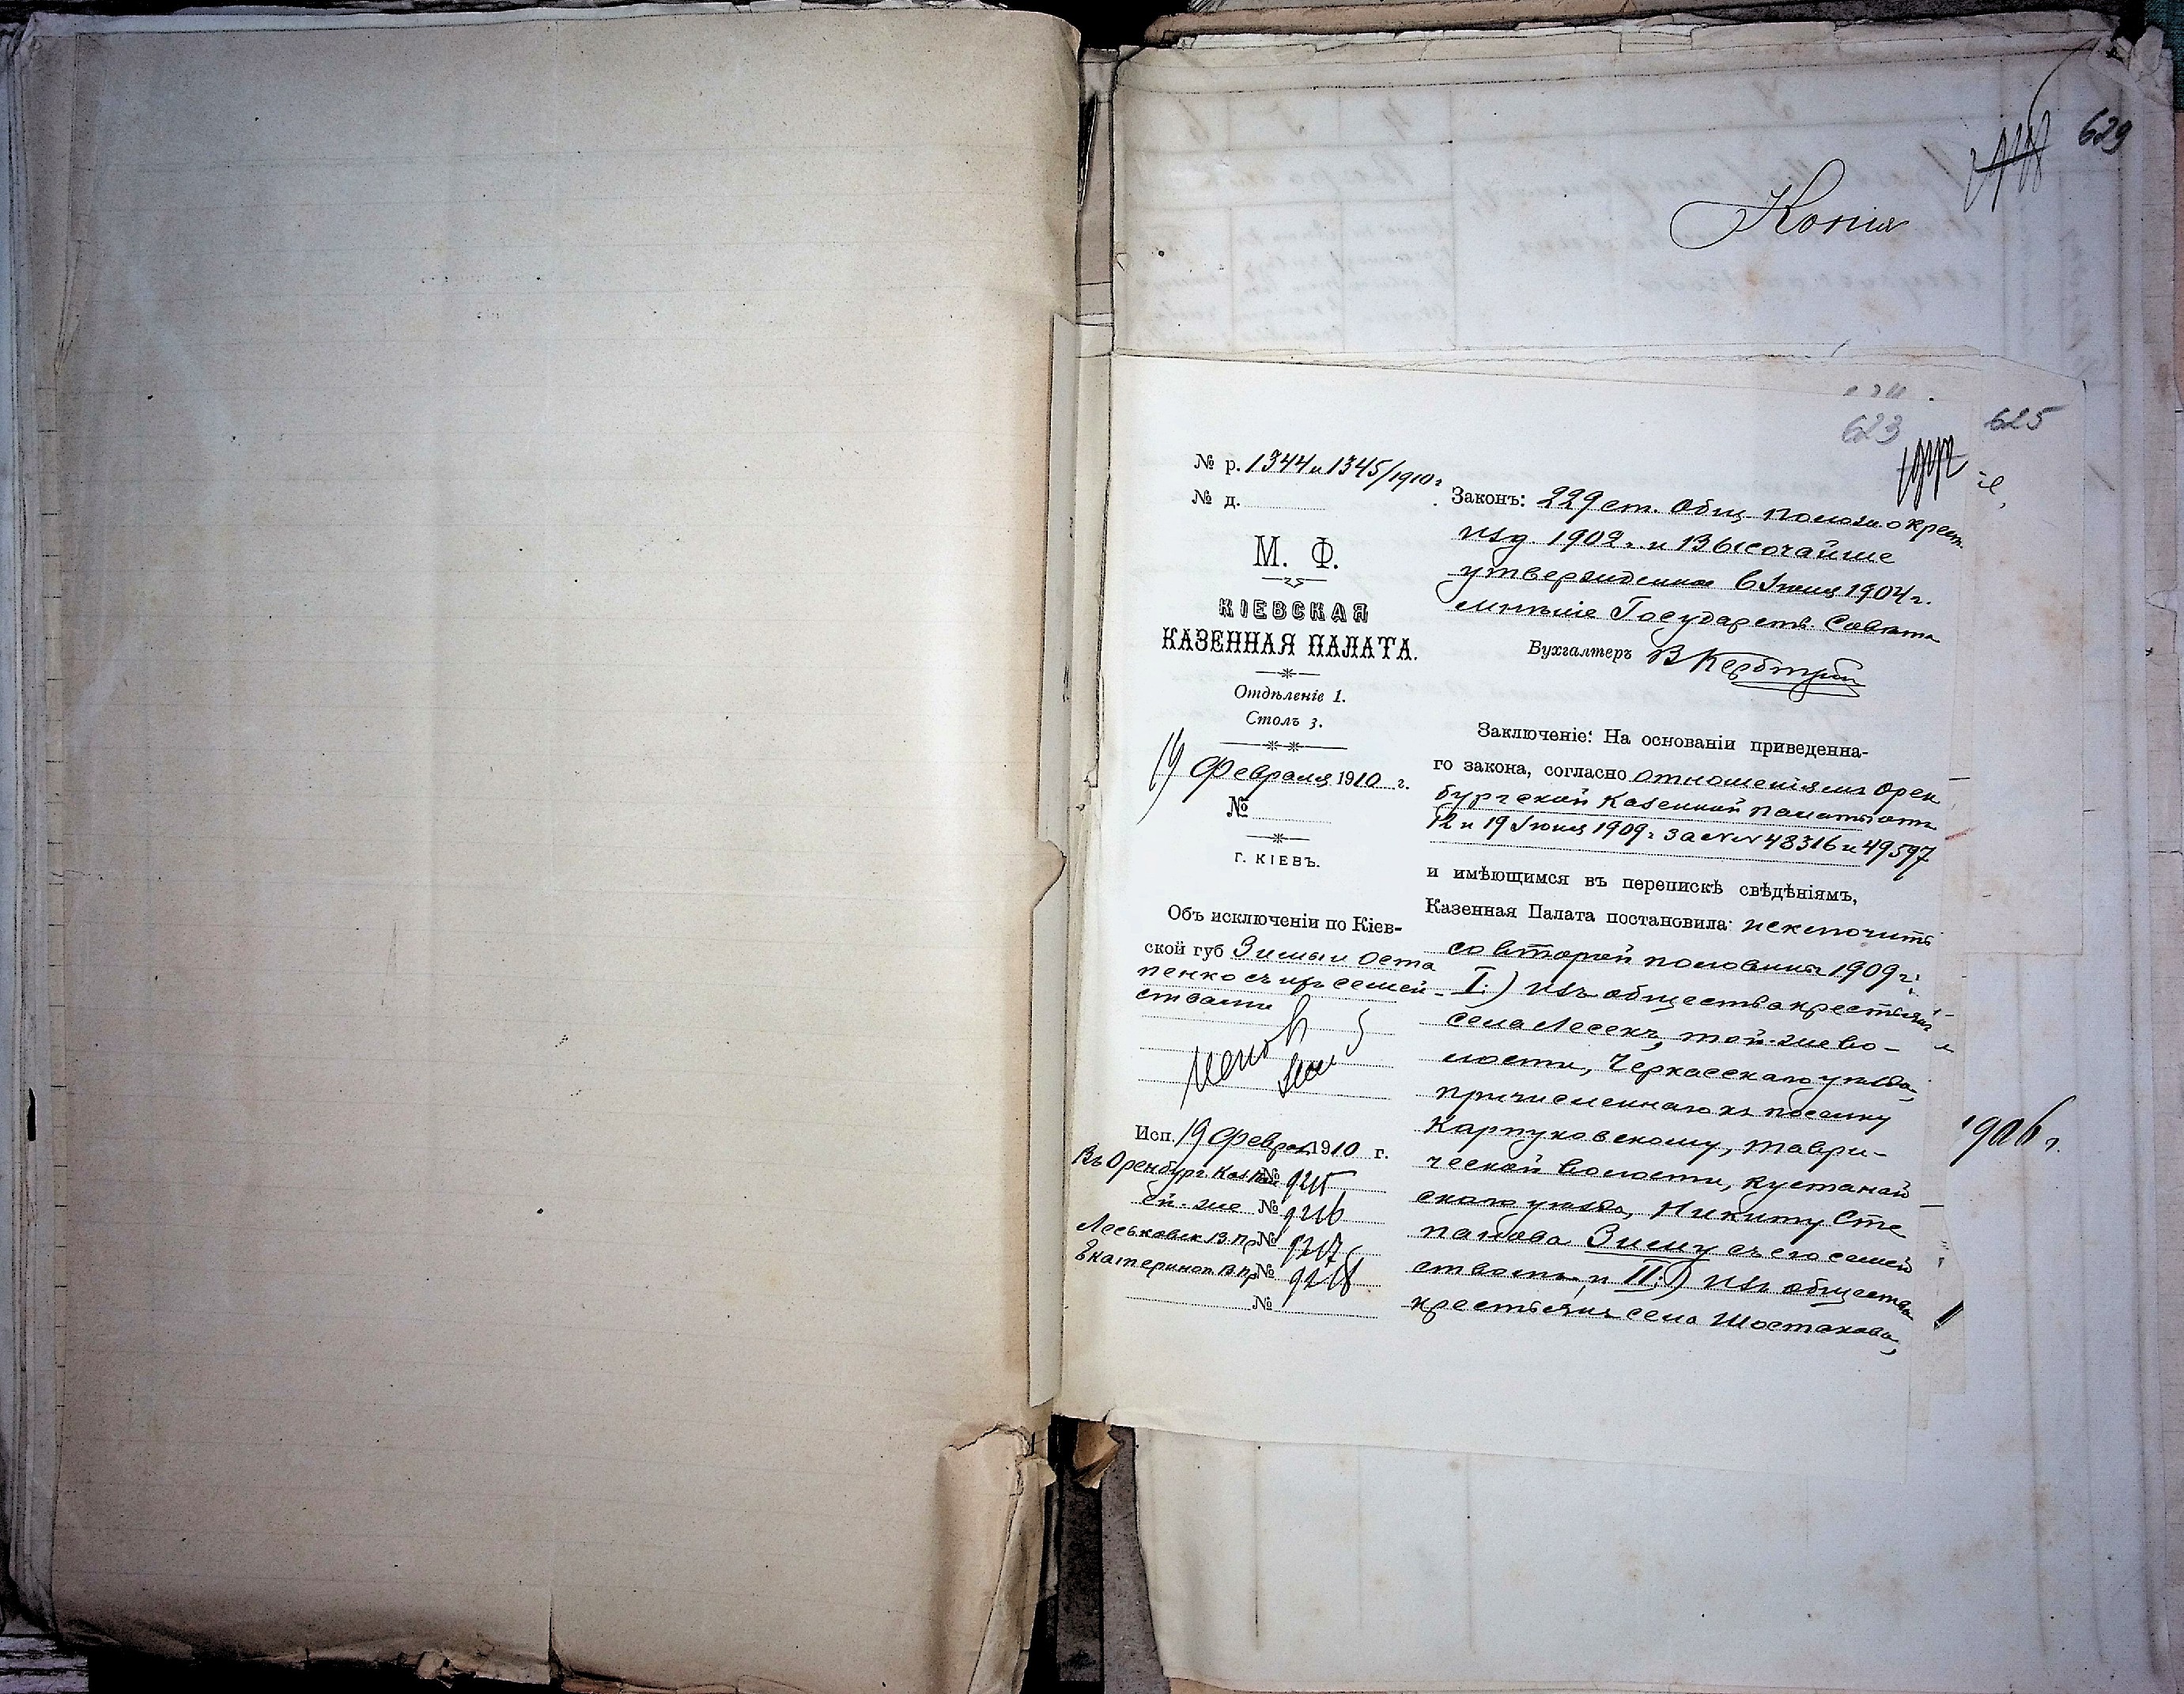 629
Копія
623
625
№ р. 1344 и 1345/1910 г
№ д.
М. Ф.
КІЕВСКАЯ
КАЗЕННАЯ ПАЛАТА.
Отдѣленіе 1.
Столъ 3.
19 Февраля 1910 г.
№
Г. КІЕВЪ.
Объ исключеніи по Кіев-
ской губ Зимы и Оста
пенко съ ихъ семей
ствами
Исп. 19 Февра 1910 г.
Въ Оренбург. Каз. № 9215
ей-же № 9216
Леськовск В. Пр № 9217
Екатериноп В. Пр № 9218
№
Законъ: 229 ст. Общ. полож. о крест.
изд. 1902 г. и Высочайше
утвержденное 6 Іюня 1904 г.
мнѣніе Государств. Совѣта
Бухгалтеръ В
Заключеніе: На основаніи приведенна-
го закона, согласно отношеніямъ Орен
бургской Казенной палаты отъ
12 и 19 Іюня 1909 г за №№ 48316 и 49597
и имѣющимся въ перепискѣ свѣдѣніямъ,
Казенная Палата постановила: исключить
со второй половины 1909 г:
I:) изъ общества крестьянъ
села Лесекъ, той-же во-
лости, Черкасскаго уѣзда,
причисленнаго къ поселку
Карпуковскому, Таври-
ческой волости, Кустанай
скаго уѣзда, Никиту Сте
панова Зиму съ его семей
ствомъ, и II:) изъ общества
крестьянъ села Шостакова,
1906 г.